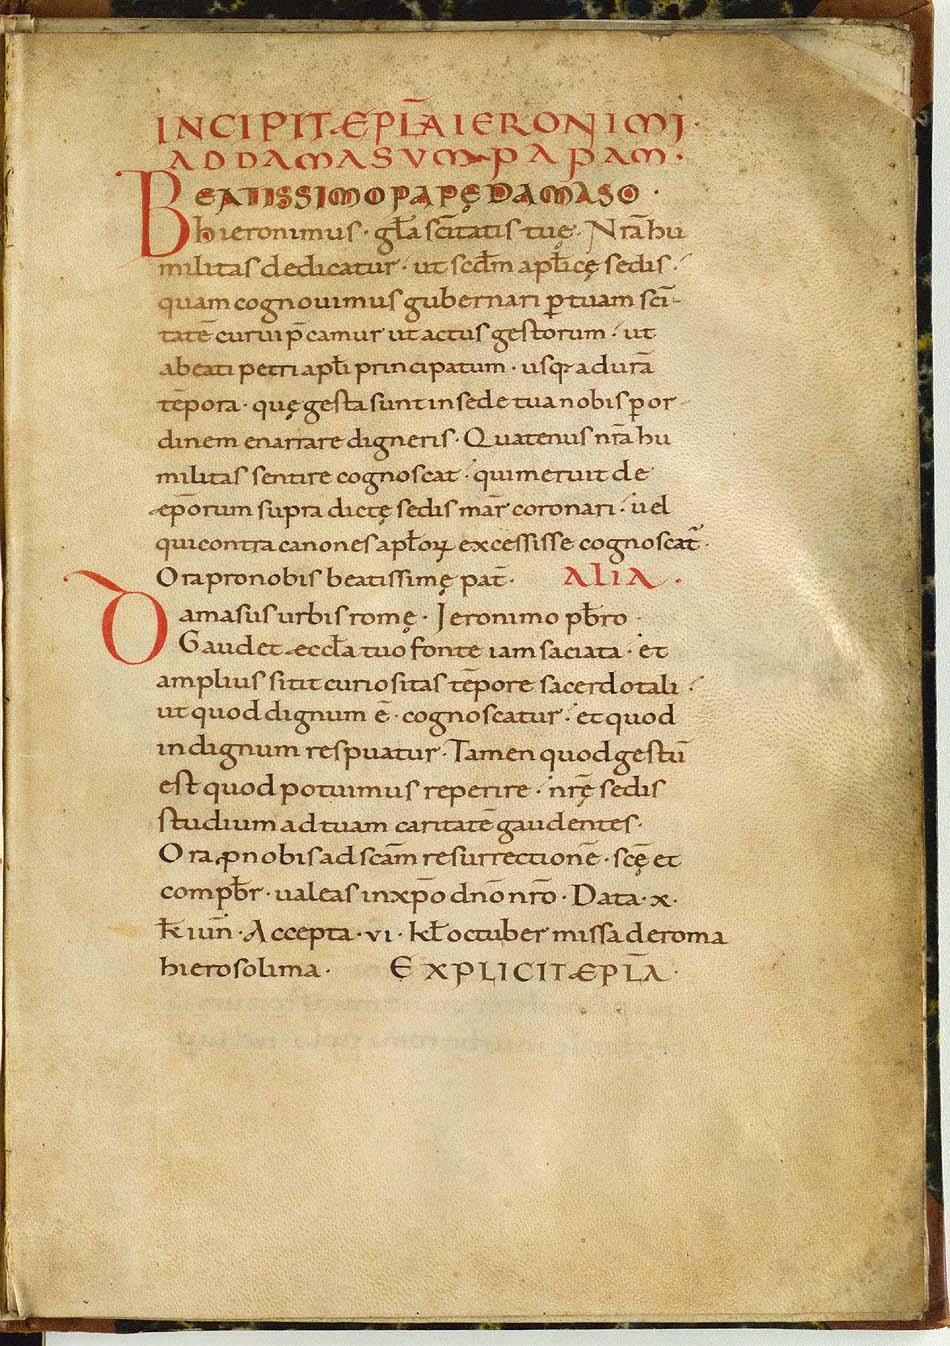 INCIPIT ÆPL̄A IERONIMI·
AD DAMASUM PAPAM·
BEATISSIMO PAPĘ DAMASO·
hieronimus· gła sc̄itatis tuę· Nr̄a hu
militas dedicatur· ut scđm apłicę sedis·
quam cognouimus gubernari ꝑ tuam sc̄i-
tatē curui p̄camur ut actus gestorum· ut
a beati petri apłi principatum· usq· ad ur̄a
tēpora· quę gesta sunt in sede tua nobis ꝑ or-
dinem enarrare digneris· Quatenus nr̄a hu
militas sentire cognoscat· qui meruit de
ęp̄orum supra dictę sedis mar̄ coronari· uel
qui contra canones apłoꝝ excessisse cognoscat̄·
Ora pro nobis beatissimę pat̄· ALIA·
Damasus urbis romę· Ieronimo pƀro·
Gaudet æccła tuo fonte iam saciata· et
amplius sitit curiositas tēpore sacerdotali·
ut quod dignum ē· cognoscatur· et quod
indignum respuatur· Tamen quod gestū
est quod potuimus reperire· nr̄ę sedis
studium ad tuam caritatē gaudentes·
Ora ꝓ nobis ad sc̄am resurrectionē· sc̄ę et
compƀr· ualeas in xp̄o dn̄o nr̄o· Data· x·
k̄ł iun̄· Accepta· vi· kł octuber missa de roma
hierosolima· EXPLICIT ÆPL̄A·